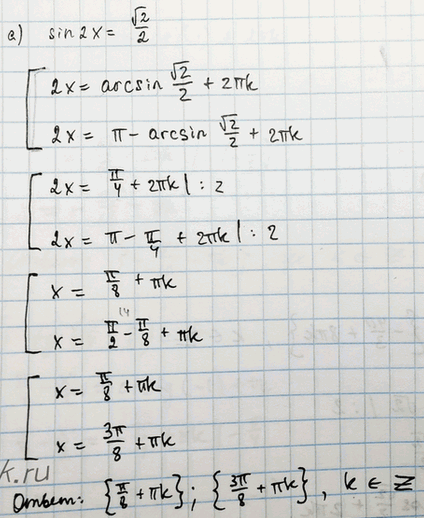 а) sin 2x = √2/2
2x = arcsin √2/2 + 2πk
2x = π - arcsin √2/2 + 2πk
2x = π/4 + 2πk | : 2
2x = π - π/4 + 2πk | : 2
x = π/8 + πk
x = π/2 (4 - π/8 + πk
x = π/8 + πk
x = 3π/8 + πk
k.ru
Ответ: {π/8 + πk}; {3π/8 + πk}, k ∈ Z